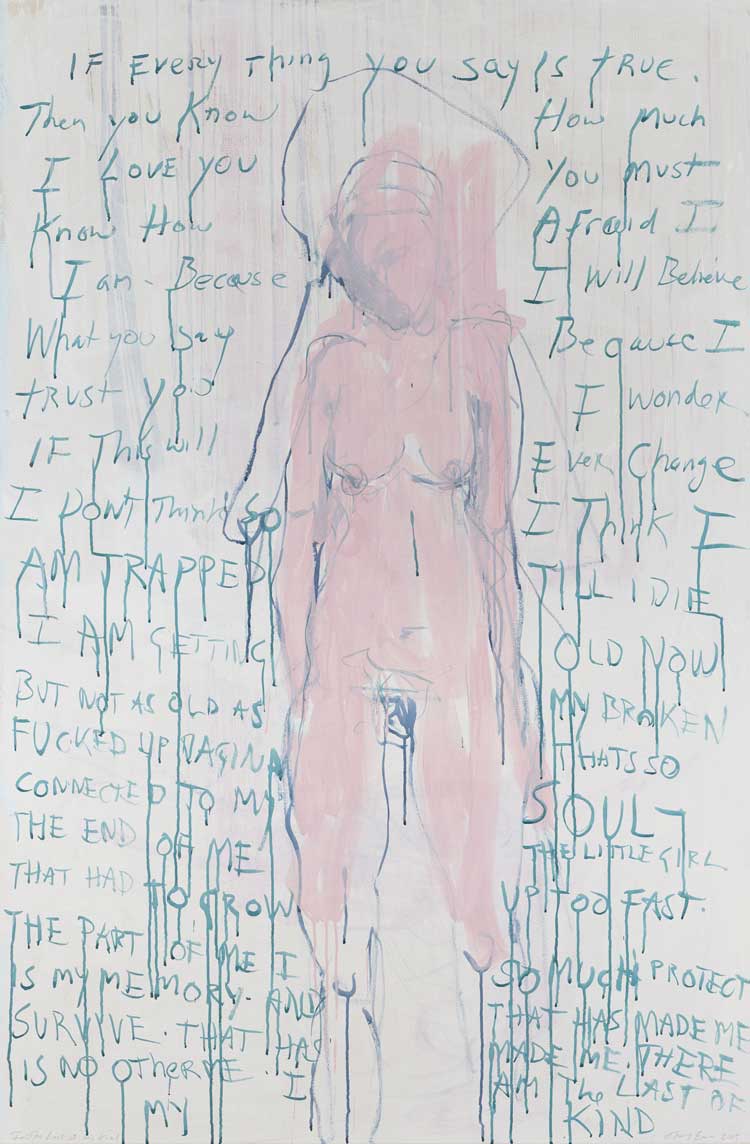 IF Every Thing you say Is true.
Then you Know How much
I LOVE you you must
Know How Afraid I
I am - Because I Will Believe
What you say Because I
trust you I wonder
IF This will Ever Change
I DONT Think so I Think I
AM TRAPPED TILL I DIE
I AM GETTING OLD NOW
BUT NOT AS OLD AS MY BROKEN
FUCKED UP VAGINA THATS SO
CONNECTED TO MY SOUL -
THE END OF ME THE LITTLE GIRL
THAT HAD TO GROW UP TOO FAST.
THE PART OF ME I SO MUCH PROTECT
IS MY MEMORY. AND THAT HAS MADE ME
SURVIVE. THAT HAS MADE ME. THERE
IS NO OTHER ME. I AM The LAST OF
MY KIND